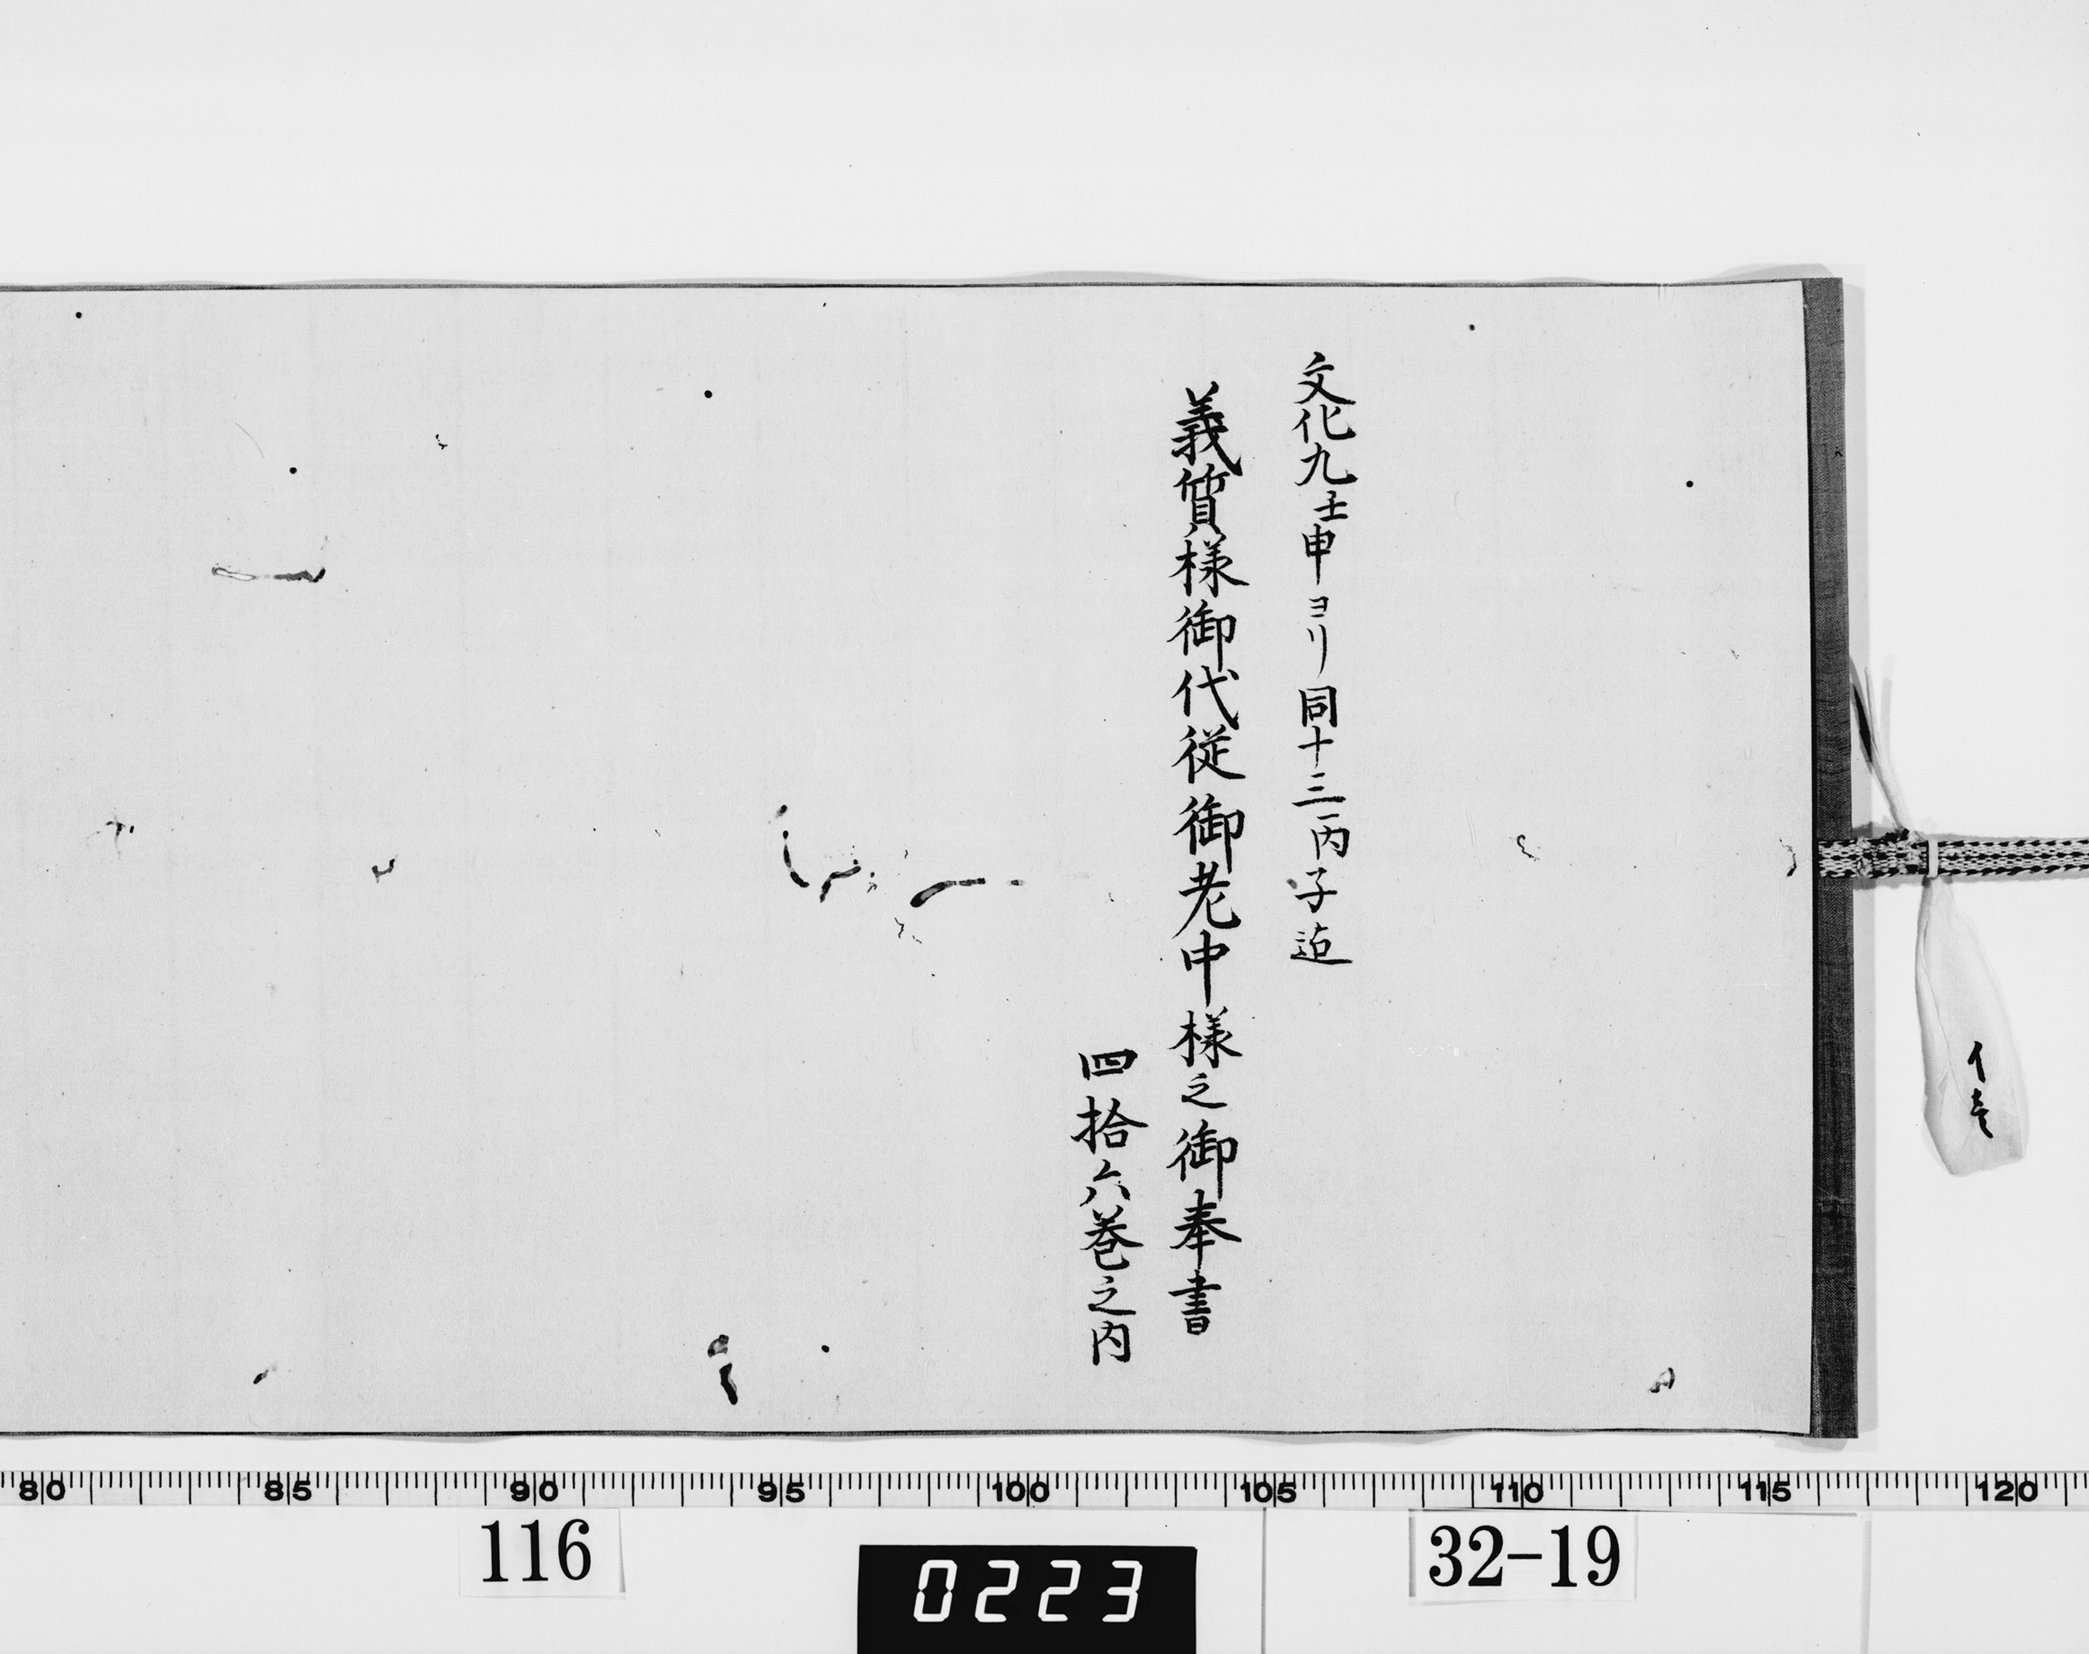 文化九壬申ヨリ同十三丙子迄
義質様御代従御老中様之御奉書
四拾六巻之内
イ壱
80 85 90 95 100 105 110 115 120
116
0223
32-19